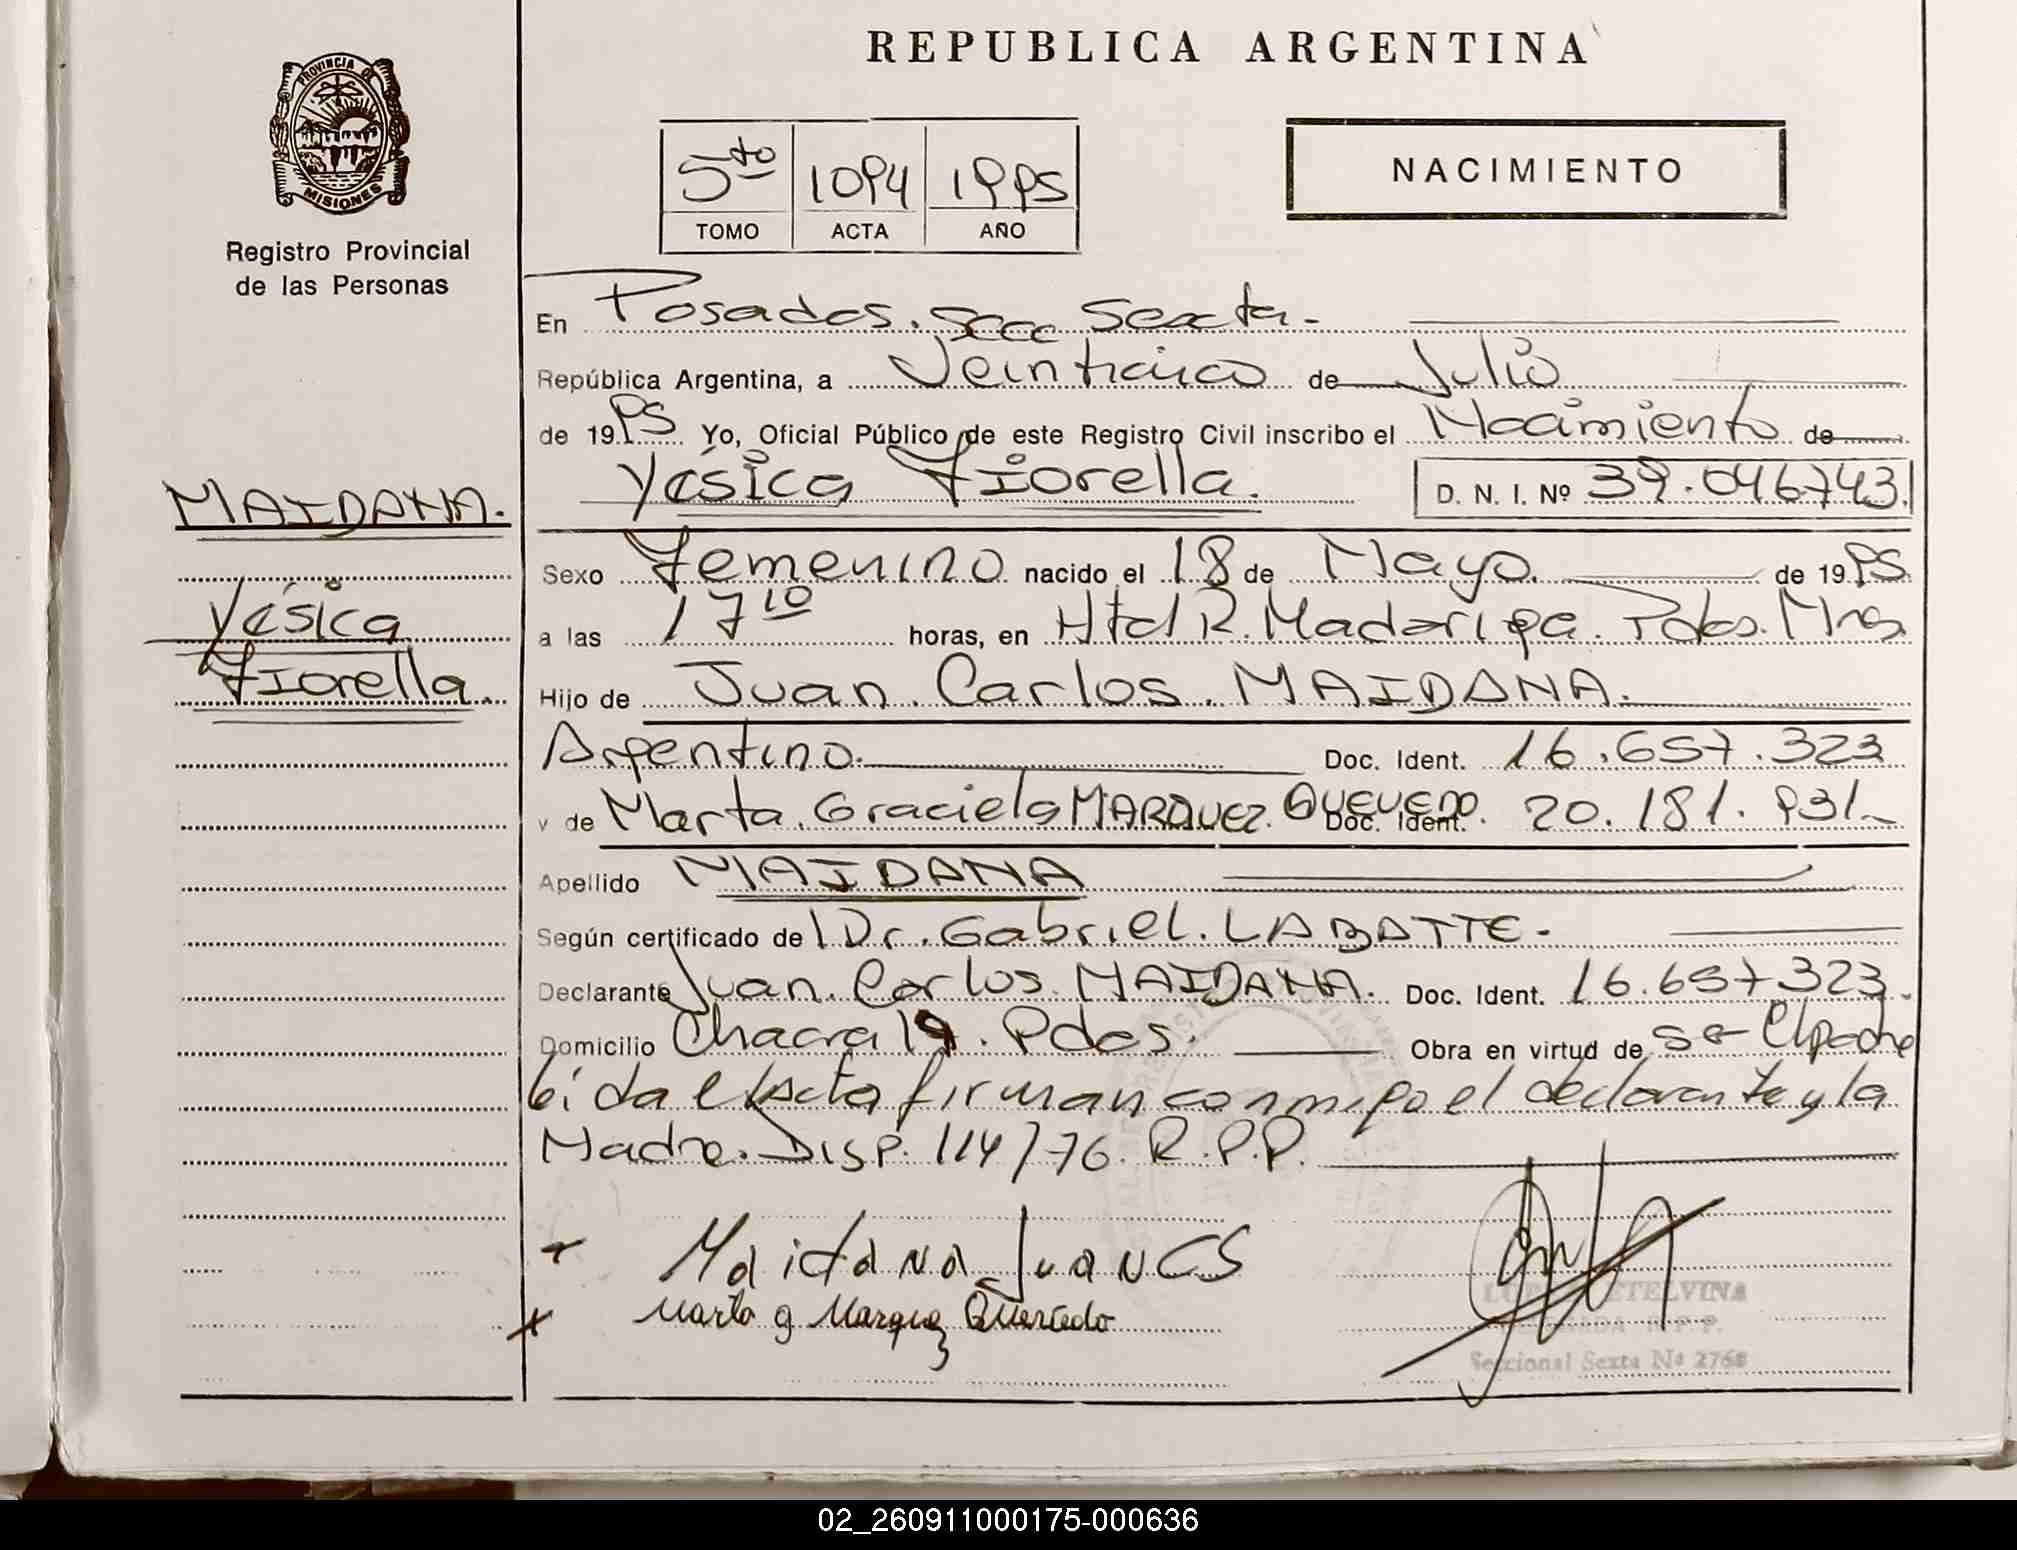 REPUBLICA ARGENTINA
PROVINCIA DE
MISIONES
Registro Provincial
de las Personas
5to 1094 1995
TOMO ACTA AÑO
NACIMIENTO
En Posadas. Secc Sexta.
República Argentina, a Veinticinco de Julio
de 1995 Yo, Oficial Público de este Registro Civil inscribo el Nacimiento de
Yésica Fiorella. D. N. I. Nº 39.046743.
MAIDANA.
Yésica
Fiorella.
Sexo Femenino nacido el 18 de Mayo. de 1995.
a las 17 10 horas, en Htal R. Madariaga. Pdas. Mnes.
Hijo de Juan. Carlos. MAIDANA.
Argentino. Doc. Ident. 16.657.323
y de Marta. Graciela MARQUEZ. QUEVEDO. Doc. Ident. 20.181.931
Apellido MAIDANA
Según certificado de Dr. Gabriel. LABATTE.
Declarante Juan. Carlos. MAIDANA. Doc. Ident. 16.657323.
Domicilio Chacra 19. Pdas. Obra en virtud de ser El padre
leída el Acta firman conmigo el declarante y la
Madre. Disp. 114/76. R.P.P.
Maidana Juan CS
Marta g Marquez Quevedo
ETELVINA
R. P. P.
Seccional Sexta Nº 2768
02_260911000175-000636